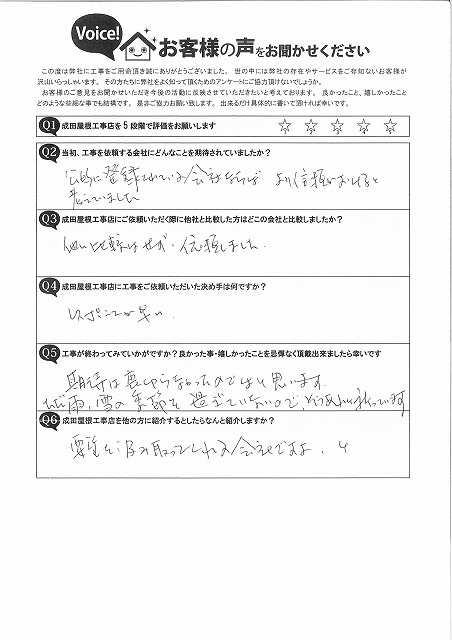 Voice!
お客様の声をお聞かせください
この度は弊社に工事をご用命頂き誠にありがとうございました。 世の中には弊社の存在やサービスをご存知ないお客様が
沢山いらっしゃいます。 その方たちに弊社をよく知って頂くためのアンケートにご協力頂けないでしょうか。
お客様のご意見をお聞かせいただき今後の活動に反映させていただきたいと考えております。 良かったこと、嬉しかったこと
どのような些細な事でも結構です。 是非ご協力お願い致します。 出来るだけ具体的に書いて頂ければ幸いです。
Q1 成田屋根工事店を5段階で評価をお願いします ☆ ☆ ☆ ☆ ☆
Q2 当初、工事を依頼する会社にどんなことを期待されていましたか?
公的に登録されている会社ならば より信頼がおけると
考えていました
Q3 成田屋根工事店にご依頼いただく際に他社と比較した方はどこの会社と比較しましたか?
他に比較はせず、依頼しました.
Q4 成田屋根工事店に工事をご依頼いただいた決め手は何ですか?
レスポンスが早い.
Q5 工事が終わってみていかがですか?良かった事・嬉しかったことを忌憚なく頂戴出来ましたら幸いです
期待は裏切らなかったのではと思います.
ただ雨、雪の季節を過ぎていないので、そうあれと祈っています
Q6 成田屋根工事店を他の方に紹介するとしたらなんと紹介しますか?
要望を汲み取ってくれる会社ですよ、と